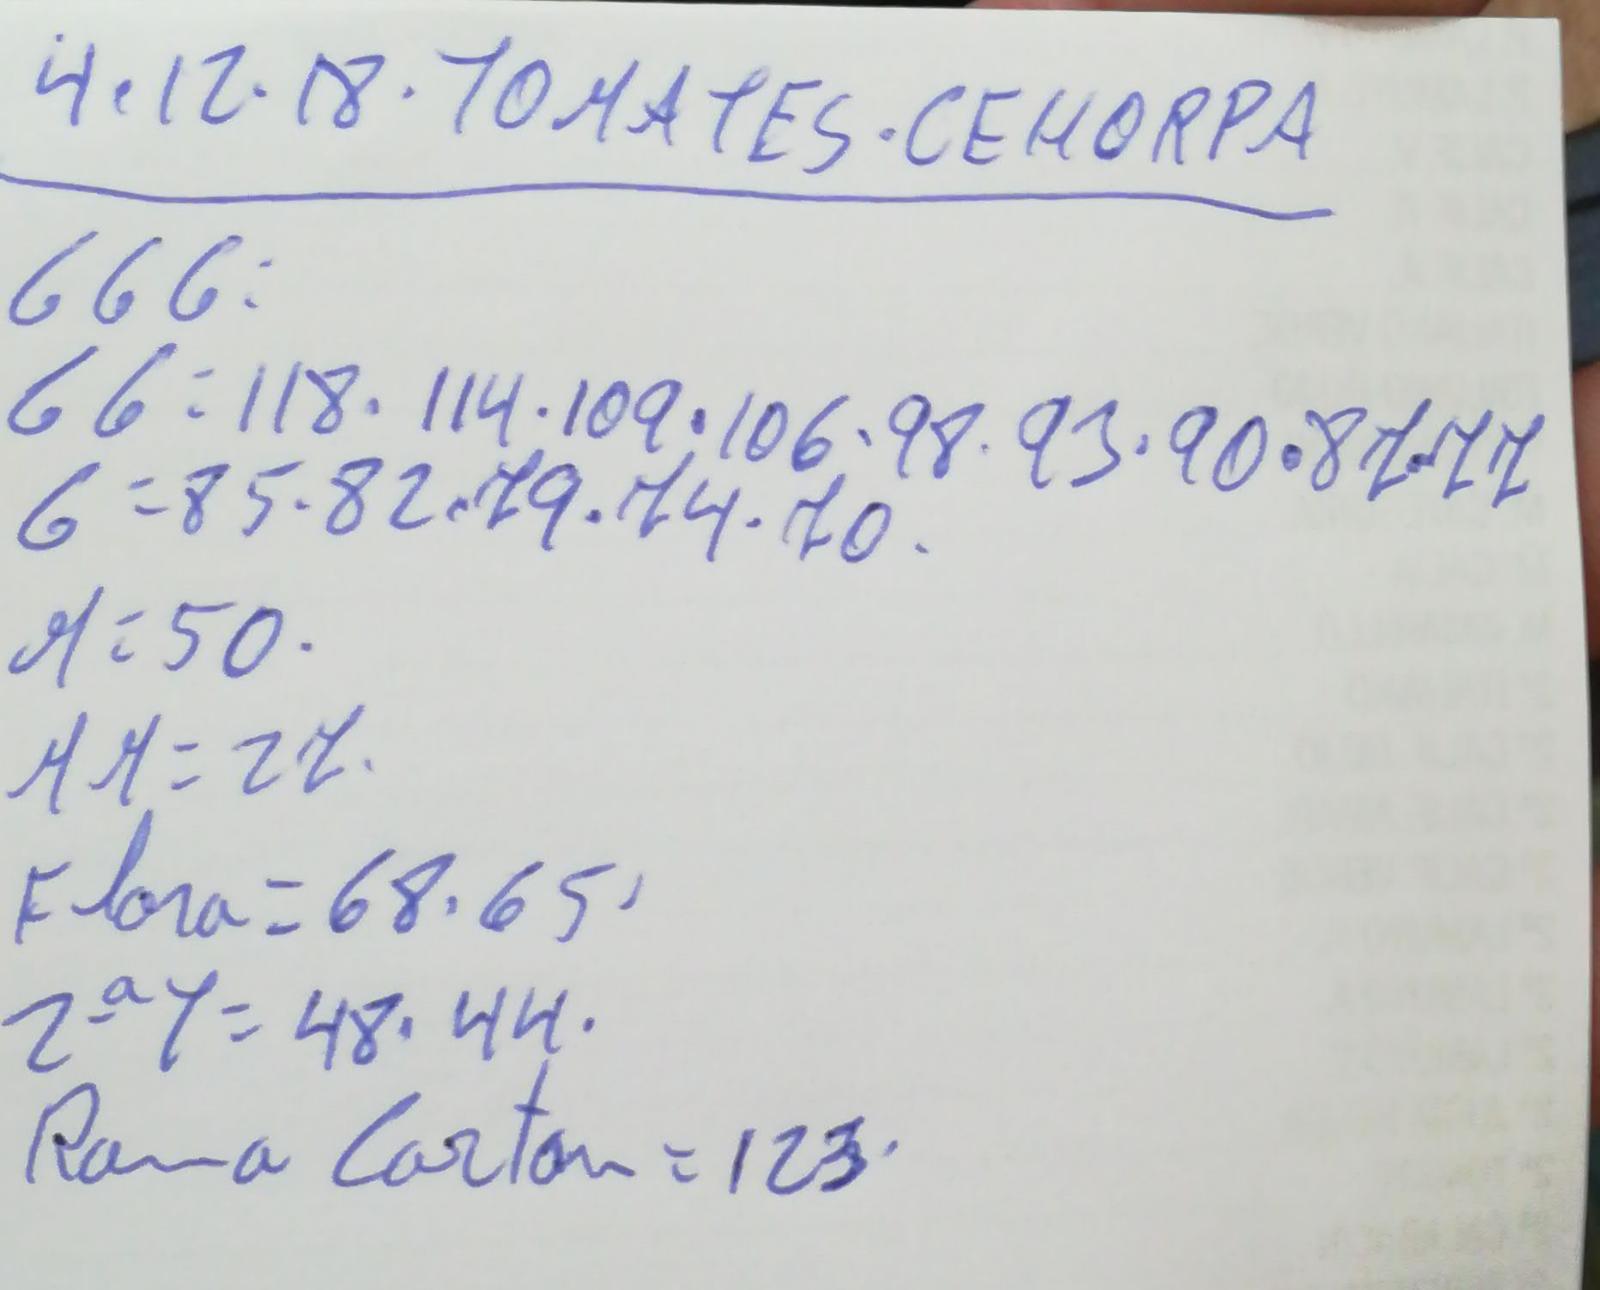 4.12.18.TOMATES.CEHORPA
GGG:
GG=118.114.109.106.98.93.90.87.77
G=85.82.79.74.70.
M=50.
MM=27.
Flora=68.65.
2ªY=48.44.
Rama Carton=123.